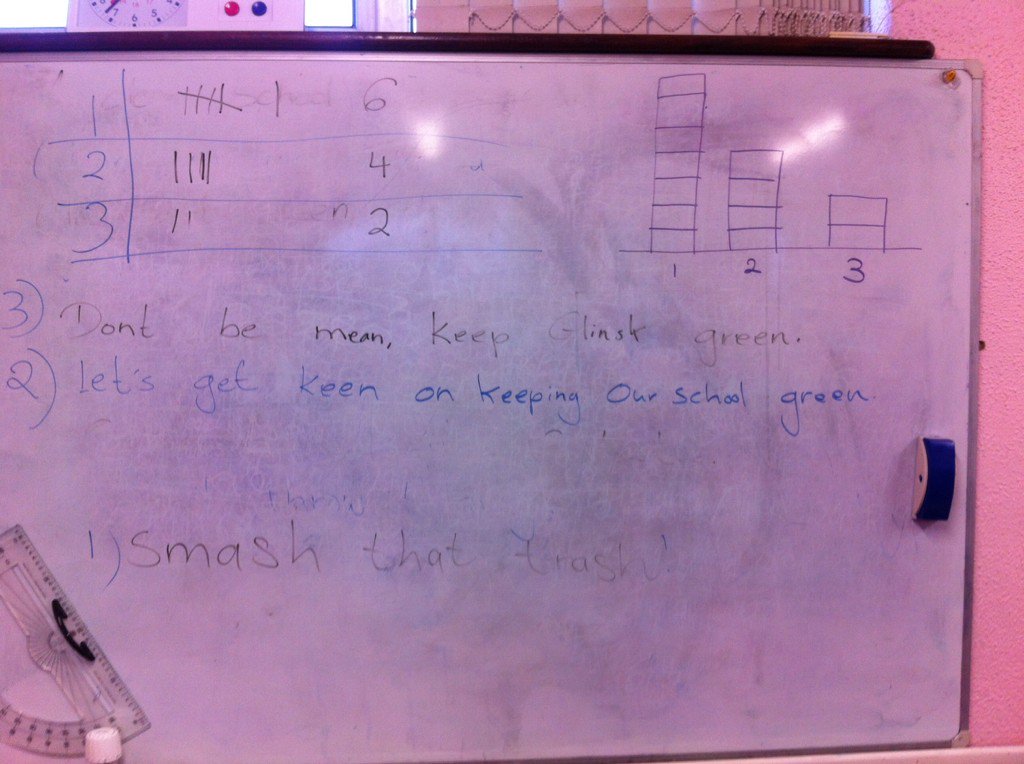 1 𝍸 | 6
2 |||| 4
3 || 2
1 2 3
3) Dont be mean, keep Glinsk green.
2) Let's get keen on keeping our school green.
1) Smash that trash!